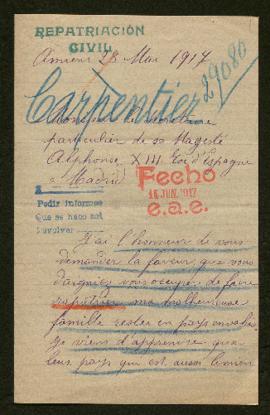 REPATRIACIÓN
CIVIL
Amiens 28 Mai 1917
29080
Carpentier
Monsieur le secrétaire
particulier de sa Magesté
Alphonse XIII Roi d'Espagne
à Madrid
Fecho
15 JUN. 1917
e.a.e.
Pedir informes
Que se haga así
Devolver
J'ai l'honneur de vous
demander la faveur que vous
daigniez vous occuper de faire
rapatrier ma malheureuse
famille restée en pays envahis
Je viens d'apprendre que
leur pays qui est aussi le mien